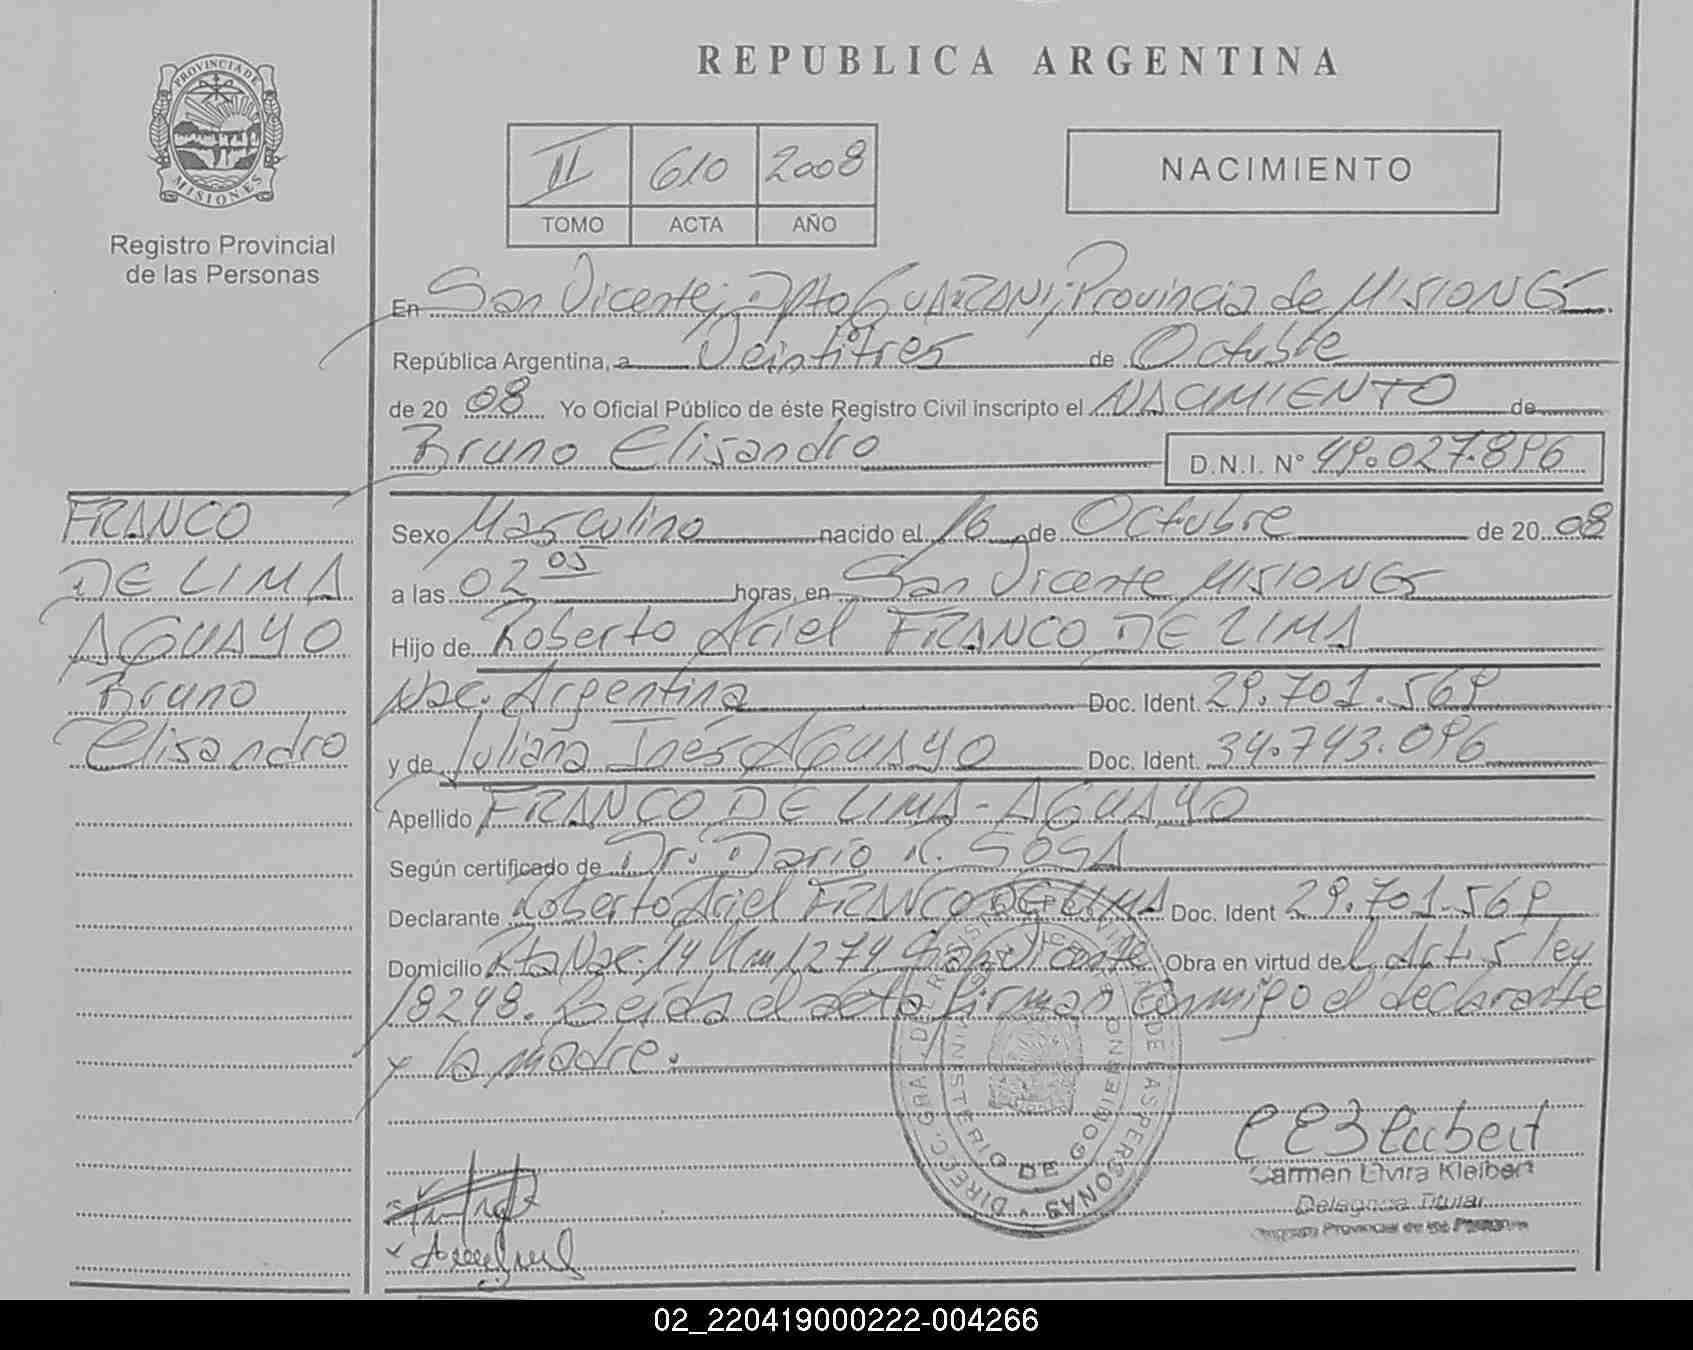 REPUBLICA ARGENTINA
PROVINCIA DE
MISIONES
Registro Provincial
de las Personas
II 610 2008
TOMO ACTA AÑO
NACIMIENTO
En San Vicente; DPto GUARANI; Provincia de MISIONES
República Argentina, a Veintitres de Octubre
de 20 08 Yo Oficial Público de éste Registro Civil inscripto el NACIMIENTO de
Bruno Elisandro D.N.I. Nº 49.027.896
FRANCO
DE LIMA
AGUAYO
Bruno
Elisandro
Sexo Masculino nacido el 16 de Octubre de 20 08
a las 02 05 horas, en San Vicente MISIONES
Hijo de Roberto Ariel FRANCO DE LIMA
Nac. Argentina Doc. Ident. 29.701.569
y de Juliana Inés AGUAYO Doc. Ident. 34.743.096
Apellido FRANCO DE LIMA - AGUAYO
Según certificado de Dr. Dario R. SOSA
Declarante Roberto Ariel FRANCO DE LIMA Doc. Ident 29.701.569
Domicilio Rta Nac. 14 Km 1274 San Vicente Obra en virtud del Art. 5 ley
18248. Leída el acta firman conmigo el declarante
y la madre.
DIREC. GRAL. DE REGISTRO PROVINCIAL DE LAS PERSONAS
MINISTERIO DE GOBIERNO
Carmen Elvira Kleibert
Delegada Titular
Registro Provincial de las Personas
02_220419000222-004266